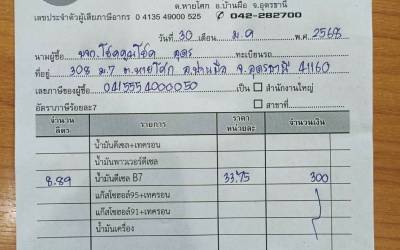 ต.หายโศก อ.บ้านผือ จ.อุดรธานี
เลขประจำตัวผู้เสียภาษีอากร 0 4135 49000 525 042-282700
วันที่ 30 เดือน ม.ค พ.ศ. 2568
นามผู้ซื้อ หจก.โชคภูมิโชค อุดร ทะเบียนรถ
ที่อยู่ 308 ม.7 ต.หายโศก อ.บ้านผือ จ.อุดรธานี 41160
เลขภาษีของผู้ซื้อ 0415554000050 เป็น สำนักงานใหญ่
อัตราภาษีร้อยละ7 สาขาที่
จำนวนลิตร รายการ ราคาหน่วยละ จำนวนเงิน
น้ำมันดีเซล+เทครอน
น้ำมันพาวเวอร์ดีเซล
8.89 น้ำมันดีเซล B7 33.75 300
แก๊สโซฮอล์95+เทครอน
แก๊สโซฮอล์91+เทครอน
น้ำมันเครื่อง